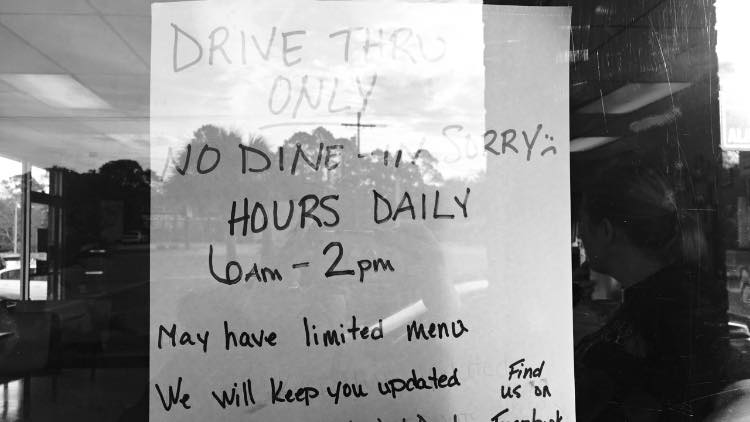 DRIVE THRU
ONLY
NO DINE-IN SORRY :(
HOURS DAILY
6AM - 2pm
May have limited menu
We will keep you updated
Find
us on